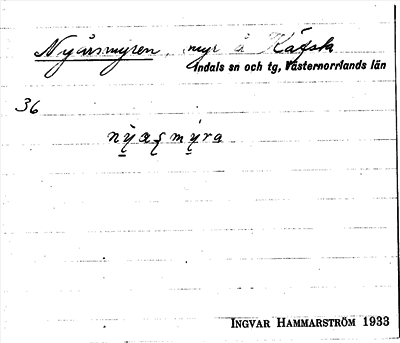 Nyårsmyren, myr å Käfsta
Indals sn och tg, Västernorrlands län
36
nỳaʂmýra
INGVAR HAMMARSTRÖM 1933